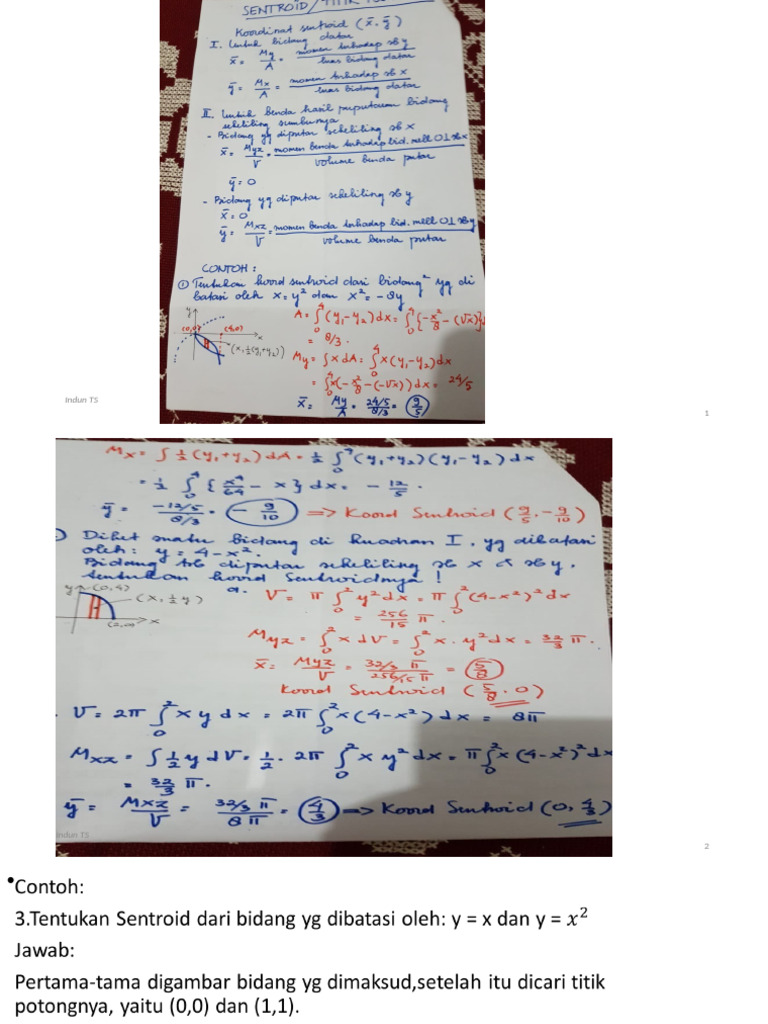 SENTROID / TITIK
Koordinat sentroid (x̄, ȳ)
I. Untuk bidang datar
x̄ = My/A = momen terhadap sb y / luas bidang datar
ȳ = Mx/A = momen terhadap sb x / luas bidang datar
II. Untuk benda hasil perputaran bidang
sekeliling sumbunya
- Bidang yg diputar sekeliling sb x
x̄ = Myz/V = momen benda terhadap bid. mell O ⊥ sb x / volume benda putar
ȳ = 0
- Bidang yg diputar sekeliling sb y
x̄ = 0
ȳ = Mxz/V = momen benda terhadap bid. mell O ⊥ sb y / volume benda putar
CONTOH :
① Tentukan koord sentroid dari bidang² yg di
batasi oleh x = y² dan x² = -8y
y
(0,0)
(4,0)
x
(x, ½(y₁+y₂))
A = ∫₀⁴ (y₁-y₂) dx = ∫₀⁴ {-x²/8 - (√x)}
= 8/3.
My = ∫ x dA = ∫₀⁴ x(y₁-y₂) dx
= ∫₀⁴ x(-x²/8 - (-√x)) dx = 24/5
x̄ = My/A = 24/5 / 8/3 = 9/5
Indun TS
1
Mx = ∫ ½ (y₁+y₂) dA = ½ ∫₀⁴ (y₁+y₂)(y₁-y₂) dx
= ½ ∫₀⁴ {x⁴/64 - x} dx = - 12/5.
ȳ = -12/5 / 8/3 = - 9/10 => Koord Sentroid (9/5, -9/10)
Diket suatu bidang di Kuadran I, yg dibatasi
oleh : y = 4 - x².
Bidang tsb diputar sekeliling sb x & sb y.
tentukan koord Sentroidnya !
y
(0,4)
(x, ½ y)
(2,0)
x
a. V = π ∫₀² y² dx = π ∫₀² (4-x²)² dx
= 256/15 π.
Myz = ∫₀² x dV = ∫₀² x. y² dx = 32/3 π.
x̄ = Myz/V = 32/3 π / 256/15 π = 5/8
Koord Sentroid (5/8, 0)
V = 2π ∫₀² x y dx = 2π ∫₀² x(4-x²) dx = 8π
Mxz = ∫ ½ y dV = ½. 2π ∫₀² x y² dx = π ∫₀² x (4-x²)² dx
= 32/3 π.
ȳ = Mxz/V = 32/3 π / 8π = 4/3 => Koord Sentroid (0, 4/3)
Indun TS
2
•Contoh:
3.Tentukan Sentroid dari bidang yg dibatasi oleh: y = x dan y = x²
Jawab:
Pertama-tama digambar bidang yg dimaksud,setelah itu dicari titik
potongnya, yaitu (0,0) dan (1,1).